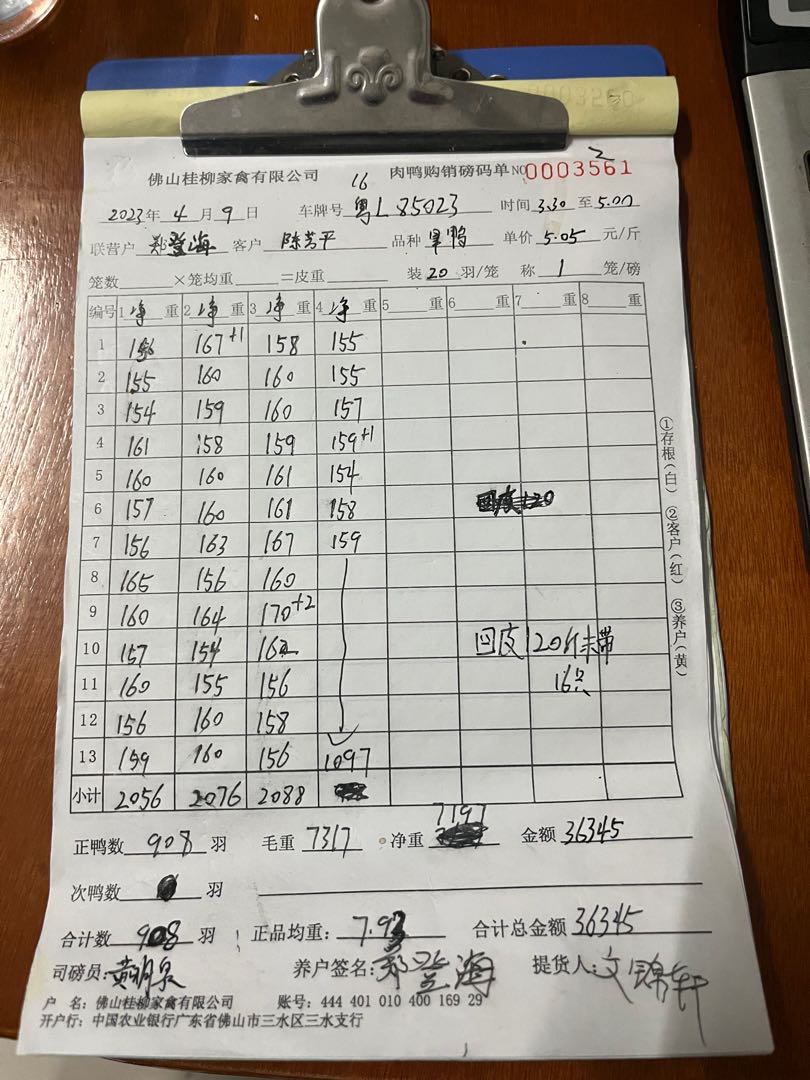 佛山桂柳家禽有限公司 16 肉鸭购销磅码单 NO 0003561 2
2023年 4 月 9 日 车牌号 粤L85023 时间 3.30 至 5.00
联营户 郑登海 客户 陈芳平 品种 旱鸭 单价 5.05 元/斤
笼数 ×笼均重 =皮重 装 20 羽/笼 称 1 笼/磅
编号 1 净 重 2 净 重 3 净 重 4 净 重 5 重 6 重 7 重 8 重
1 156 167+1 158 155
2 155 160 160 155
3 154 159 160 157
4 161 158 159 159+1
5 160 160 161 154
6 157 160 161 158
7 156 163 167 159
8 165 156 160
9 160 164 170+2
10 157 154 162 回皮120斤未带
11 160 155 156 16只
12 156 160 158
13 159 160 156 1097
小计 2056 2076 2088
①存根(白) ②客户(红) ③养户(黄)
正鸭数 908 羽 毛重 7317 净重 7197 金额 36345
次鸭数 羽
合计数 908 羽 正品均重: 7.93 合计总金额 36345
司磅员: 黄明泉 养户签名: 郑登海 提货人: 文锦轩
户 名: 佛山桂柳家禽有限公司 账号: 444 401 010 400 169 29
开户行: 中国农业银行广东省佛山市三水区三水支行